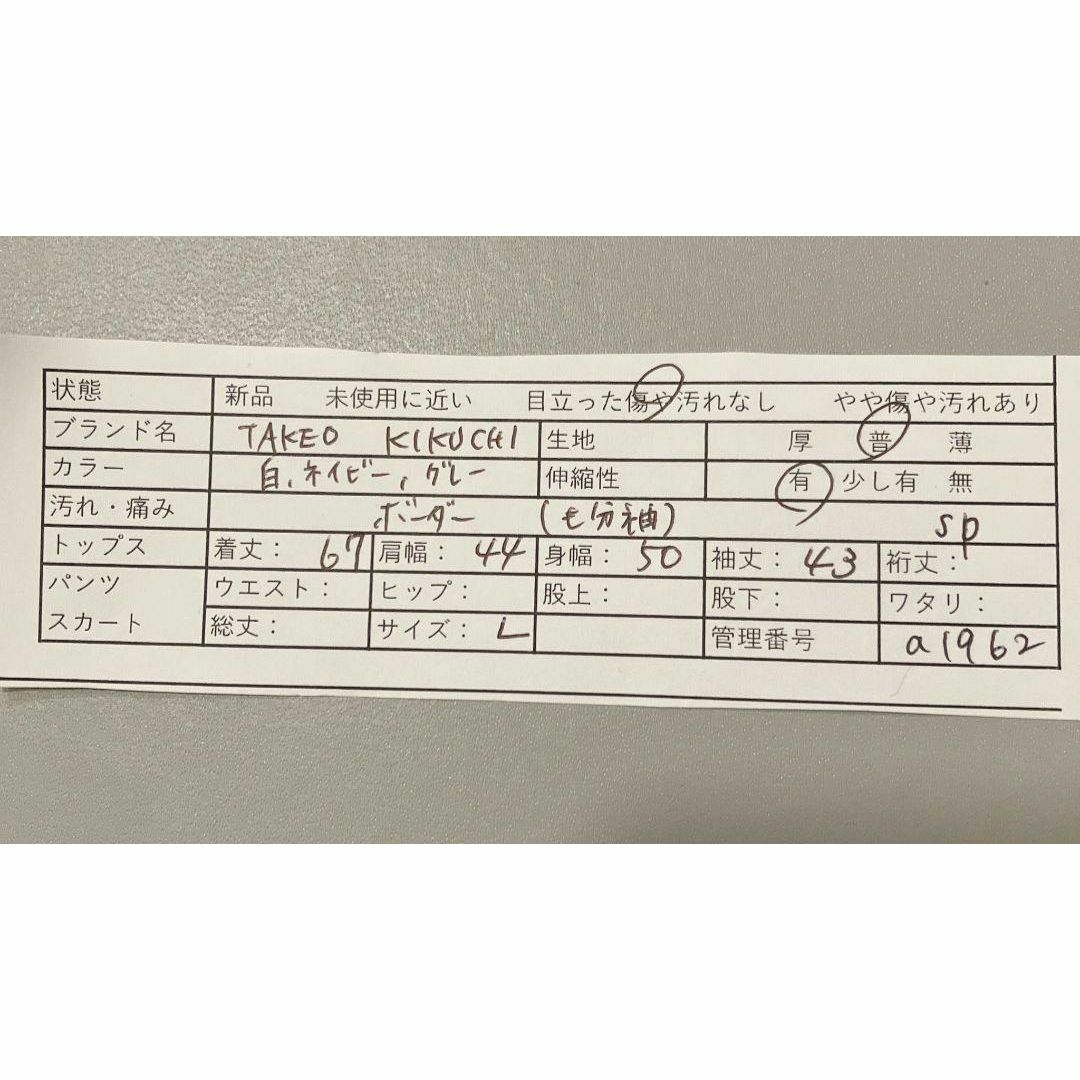 状態 新品 未使用に近い 目立った傷や汚れなし やや傷や汚れあり
ブランド名 TAKEO KIKUCHI 生地 厚 普 薄
カラー 白、ネイビー、グレー 伸縮性 有 少し有 無
汚れ・痛み ボーダー (七分袖) sp
トップス 着丈: 67 肩幅: 44 身幅: 50 袖丈: 43 裄丈:
パンツ ウエスト: ヒップ: 股上: 股下: ワタリ:
スカート 総丈: サイズ: L 管理番号 a1962